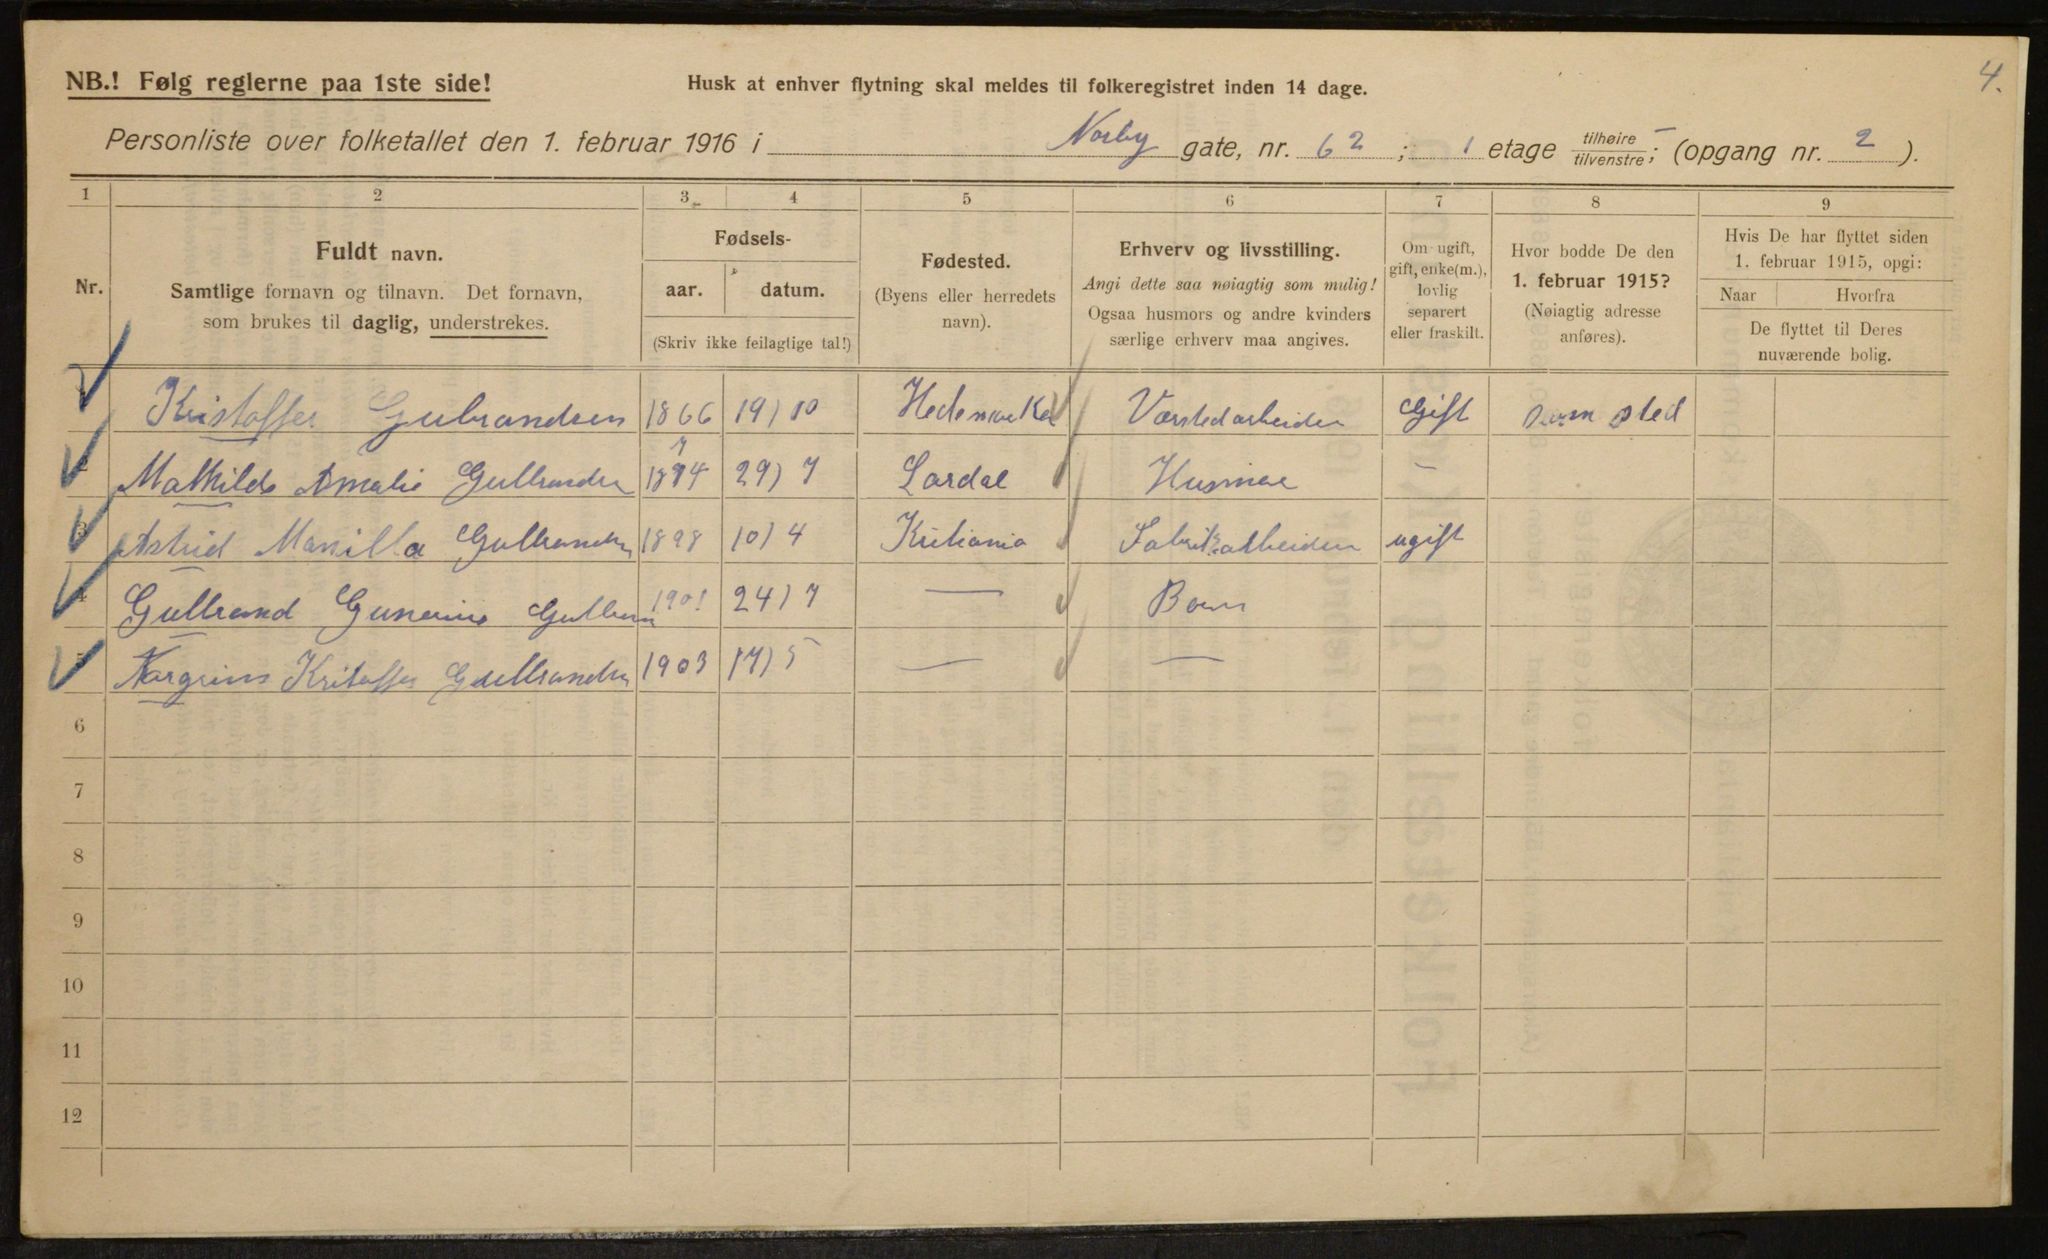 4.
NB.! Følg reglerne paa 1ste side!
Husk at enhver flytning skal meldes til folkeregistret inden 14 dage.
Personliste over folketallet den 1. februar 1916 i Norby gate, nr. 62; 1 etage tilhøire/tilvenstre; (opgang nr. 2).
1 2 3 4 5 6 7 8 9
Nr.
Fuldt navn.
Samtlige fornavn og tilnavn. Det fornavn,
som brukes til daglig, understrekes.
Fødsels-
aar. datum.
(Skriv ikke feilagtige tal!)
Fødested.
(Byens eller herredets
navn).
Erhverv og livsstilling.
Angi dette saa nøiagtig som mulig!
Ogsaa husmors og andre kvinders
særlige erhverv maa angives.
Om ugift,
gift, enke(m.),
lovlig
separert
eller fraskilt.
Hvor bodde De den
1. februar 1915?
(Nøiagtig adresse
anføres).
Hvis De har flyttet siden
1. februar 1915, opgi:
Naar Hvorfra
De flyttet til Deres
nuværende bolig.
Kristoffer Gubrandsen 1866 19/10 Hedemarken Værstedarbeider Gift sam sted
2 Mathilde Amalie Gulbrandsen 29/7 Lardal Husmor –
3 Astrid Gulbrandsen 1898 10/4 Kristiania Fabrikarbeider ugift
4 Gulbrand Gunerius 1901 24/7 — Barn
5 Kristoffer Gulbrandsen 1903 17/5 — —
6
7
8
9
10
11
12